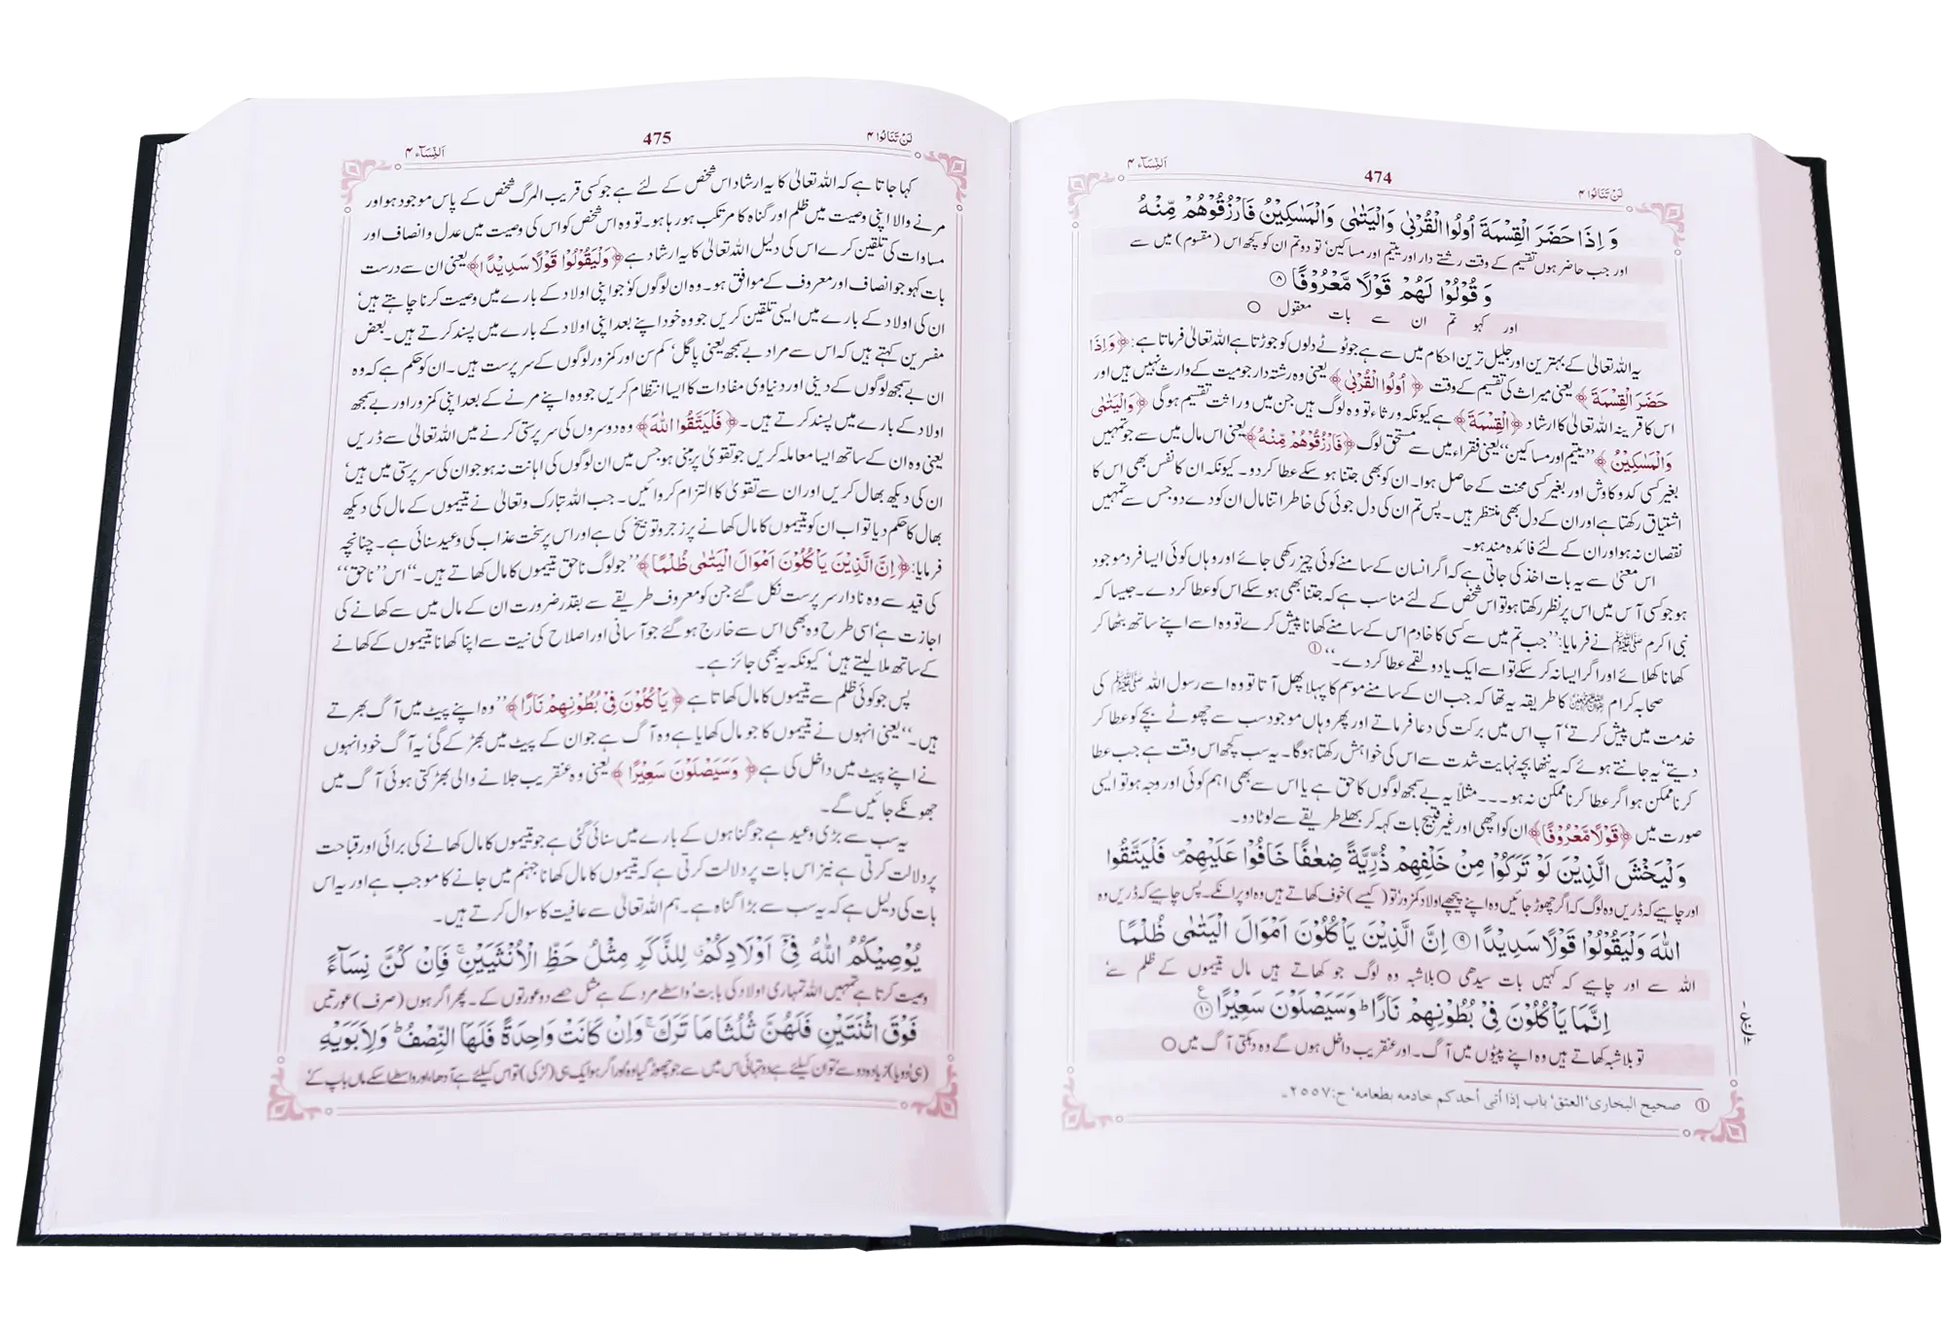 لَنْ تَنَالُوا ۴
474
اَلنِّسَآء ۴
وَ اِذَا حَضَرَ الْقِسْمَةَ اُولُوا الْقُرْبٰى وَالْيَتٰمٰى وَالْمَسٰكِيْنُ فَارْزُقُوْهُمْ مِّنْهُ
اور جب حاضر ہوں تقسیم کے وقت رشتے دار اور یتیم اور مساکین' تو دو تم ان کو کچھ اس (مقسوم) میں سے
وَ قُوْلُوْا لَهُمْ قَوْلًا مَّعْرُوْفًا ۸
اور کہو تم ان سے بات معقول ○
یہ اللہ تعالیٰ کے بہترین اور جلیل ترین احکام میں سے ہے جو ٹوٹے دلوں کو جوڑتا ہے اللہ تعالیٰ فرماتا ہے: ﴿وَاِذَا
حَضَرَ الْقِسْمَةَ﴾ یعنی میراث کی تقسیم کے وقت ﴿اُولُوا الْقُرْبٰى﴾ یعنی وہ رشتہ دار جو میت کے وارث نہیں ہیں اور
اس کا قرینہ اللہ تعالیٰ کا ارشاد ﴿الْقِسْمَةَ﴾ ہے کیونکہ ورثاء تو وہ لوگ ہیں جن میں وراثت تقسیم ہوگی ﴿وَالْيَتٰمٰى
وَالْمَسٰكِيْنُ﴾ ''یتیم اور مساکین'' یعنی فقراء میں سے مستحق لوگ ﴿فَارْزُقُوْهُمْ مِّنْهُ﴾ یعنی اس مال میں سے جو تمہیں
بغیر کسی کدو کاوش اور بغیر کسی محنت کے حاصل ہوا۔ ان کو بھی جتنا ہو سکے عطا کر دو۔ کیونکہ ان کا نفس بھی اس کا
اشتیاق رکھتا ہے اور ان کے دل بھی منتظر ہیں۔ پس تم ان کی دل جوئی کی خاطر اتنا مال ان کو دے دو جس سے تمہیں
نقصان نہ ہو اور ان کے لئے فائدہ مند ہو۔
اس معنیٰ سے یہ بات اخذ کی جاتی ہے کہ اگر انسان کے سامنے کوئی چیز رکھی جائے اور وہاں کوئی ایسا فرد موجود
ہو جو کسی آس میں اس پر نظر رکھتا ہو تو اس شخص کے لئے مناسب ہے کہ جتنا بھی ہو سکے اس کو عطا کر دے۔ جیسا کہ
نبی اکرم ﷺ نے فرمایا: ''جب تم میں سے کسی کا خادم اس کے سامنے کھانا پیش کرے تو وہ اسے اپنے ساتھ بٹھا کر
کھانا کھلائے اور اگر ایسا نہ کر سکے تو اسے ایک یا دو لقمے عطا کر دے۔'' ①
صحابہ کرام کا طریقہ یہ تھا کہ جب ان کے سامنے موسم کا پہلا پھل آتا تو وہ اسے رسول اللہ ﷺ کی
خدمت میں پیش کرتے' آپ اس میں برکت کی دعا فرماتے اور پھر وہاں موجود سب سے چھوٹے بچے کو عطا کر
دیتے' یہ جانتے ہوئے کہ یہ ننھا بچہ نہایت شدت سے اس کی خواہش رکھتا ہوگا۔ یہ سب کچھ اس وقت ہے جب عطا
کرنا ممکن ہو اگر عطا کرنا ممکن نہ ہو۔۔۔ مثلاً یہ بے سمجھ لوگوں کا حق ہے یا اس سے بھی اہم کوئی اور وجہ ہو تو ایسی
صورت میں ﴿قَوْلًا مَّعْرُوْفًا﴾ ان کو اچھی اور غیر قبیح بات کہہ کر بھلے طریقے سے لوٹا دو۔
وَلْيَخْشَ الَّذِيْنَ لَوْ تَرَكُوْا مِنْ خَلْفِهِمْ ذُرِّيَّةً ضِعٰفًا خَافُوْا عَلَيْهِمْ فَلْيَتَّقُوا
اور چاہیے کہ ڈریں وہ لوگ کہ اگر چھوڑ جائیں وہ اپنے پیچھے اولاد کمزور' تو (کیسے) خوف کھاتے ہیں وہ اوپر انکے۔ پس چاہیے کہ ڈریں وہ
اللّٰهَ وَلْيَقُوْلُوْا قَوْلًا سَدِيْدًا ۹ اِنَّ الَّذِيْنَ يَاْكُلُوْنَ اَمْوَالَ الْيَتٰمٰى ظُلْمًا
اللہ سے اور چاہیے کہ کہیں بات سیدھی ○ بلاشبہ وہ لوگ جو کھاتے ہیں مال یتیموں کے ظلم سے'
اِنَّمَا يَاْكُلُوْنَ فِيْ بُطُوْنِهِمْ نَارًا ؕ وَسَيَصْلَوْنَ سَعِيْرًا ۱۰
تو بلاشبہ کھاتے ہیں وہ اپنے پیٹوں میں آگ۔ اور عنقریب داخل ہوں گے وہ دہکتی آگ میں ○
① صحيح البخاری' العتق' باب إذا أتى أحدكم خادمه بطعامه' ح:۲۵۵۷۔
لَنْ تَنَالُوا ۴
475
اَلنِّسَآء ۴
کہا جاتا ہے کہ اللہ تعالیٰ کا یہ ارشاد اس شخص کے لئے ہے جو کسی قریب المرگ شخص کے پاس موجود ہو اور
مرنے والا اپنی وصیت میں ظلم اور گناہ کا مرتکب ہو رہا ہو۔ تو وہ اس شخص کو اس کی وصیت میں عدل و انصاف اور
مساوات کی تلقین کرے اس کی دلیل اللہ تعالیٰ کا یہ ارشاد ہے ﴿وَلْيَقُوْلُوْا قَوْلًا سَدِيْدًا﴾ یعنی ان سے درست
بات کہو جو انصاف اور معروف کے موافق ہو۔ وہ ان لوگوں کو' جو اپنی اولاد کے بارے میں وصیت کرنا چاہتے ہیں'
ان کی اولاد کے بارے میں ایسی تلقین کریں جو وہ خود اپنے بعد اپنی اولاد کے بارے میں پسند کرتے ہیں۔ بعض
مفسرین کہتے ہیں کہ اس سے مراد بے سمجھ یعنی پاگل' کم سن اور کمزور لوگوں کے سرپرست ہیں۔ ان کو حکم ہے کہ وہ
ان بے سمجھ لوگوں کے دینی اور دنیاوی مفادات کا ایسا انتظام کریں جو وہ اپنے مرنے کے بعد اپنی کمزور اور بے سمجھ
اولاد کے بارے میں پسند کرتے ہیں۔ ﴿فَلْيَتَّقُوا اللّٰهَ﴾ وہ دوسروں کی سرپرستی کرنے میں اللہ تعالیٰ سے ڈریں
یعنی وہ ان کے ساتھ ایسا معاملہ کریں جو تقویٰ پر مبنی ہو جس میں ان لوگوں کی اہانت نہ ہو جو ان کی سرپرستی میں ہیں'
ان کی دیکھ بھال کریں اور ان سے تقویٰ کا التزام کروائیں۔ جب اللہ تبارک وتعالیٰ نے یتیموں کے مال کی دیکھ
بھال کا حکم دیا تو اب ان کو یتیموں کا مال کھانے پر زجر و توبیخ کی ہے اور اس پر سخت عذاب کی وعید سنائی ہے۔ چنانچہ
فرمایا: ﴿اِنَّ الَّذِيْنَ يَاْكُلُوْنَ اَمْوَالَ الْيَتٰمٰى ظُلْمًا﴾ ''جو لوگ ناحق یتیموں کا مال کھاتے ہیں۔'' اس ''ناحق''
کی قید سے وہ نادار سرپرست نکل گئے جن کو معروف طریقے سے بقدر ضرورت ان کے مال میں سے کھانے کی
اجازت ہے' اسی طرح وہ بھی اس سے خارج ہو گئے جو آسانی اور اصلاح کی نیت سے اپنا کھانا یتیموں کے کھانے
کے ساتھ ملا لیتے ہیں' کیونکہ یہ بھی جائز ہے۔
پس جو کوئی ظلم سے یتیموں کا مال کھاتا ہے ﴿يَاْكُلُوْنَ فِيْ بُطُوْنِهِمْ نَارًا﴾ ''وہ اپنے پیٹ میں آگ بھرتے
ہیں۔'' یعنی انہوں نے یتیموں کا جو مال کھایا ہے وہ آگ ہے جو ان کے پیٹ میں بھڑکے گی' یہ آگ خود انہوں
نے اپنے پیٹ میں داخل کی ہے ﴿وَسَيَصْلَوْنَ سَعِيْرًا﴾ یعنی وہ عنقریب جلانے والی بھڑکتی ہوئی آگ میں
جھونکے جائیں گے۔
یہ سب سے بڑی وعید ہے جو گناہوں کے بارے میں سنائی گئی ہے جو یتیموں کا مال کھانے کی برائی اور قباحت
پر دلالت کرتی ہے نیز اس بات پر دلالت کرتی ہے کہ یتیموں کا مال کھانا جہنم میں جانے کا موجب ہے اور یہ اس
بات کی دلیل ہے کہ یہ سب سے بڑا گناہ ہے۔ ہم اللہ تعالیٰ سے عافیت کا سوال کرتے ہیں۔
يُوْصِيْكُمُ اللّٰهُ فِيْٓ اَوْلَادِكُمْ لِلذَّكَرِ مِثْلُ حَظِّ الْاُنْثَيَيْنِ ۚ فَاِنْ كُنَّ نِسَآءً
وصیت کرتا ہے تمہیں اللہ تمہاری اولاد کی بابت' واسطے مرد کے ہے مثل حصے دو عورتوں کے۔ پھر اگر ہوں (صرف) عورتیں
فَوْقَ اثْنَتَيْنِ فَلَهُنَّ ثُلُثَا مَا تَرَكَ ۚ وَاِنْ كَانَتْ وَاحِدَةً فَلَهَا النِّصْفُ ؕ وَلِاَبَوَيْهِ
(ہی دو یا) زیادہ دو سے تو ان کیلئے ہے دو تہائی اس میں سے جو چھوڑ گیا وہ اور اگر ہو ایک ہی (لڑکی) تو اس کیلئے ہے آدھا، اور واسطے اسکے ماں باپ کے'